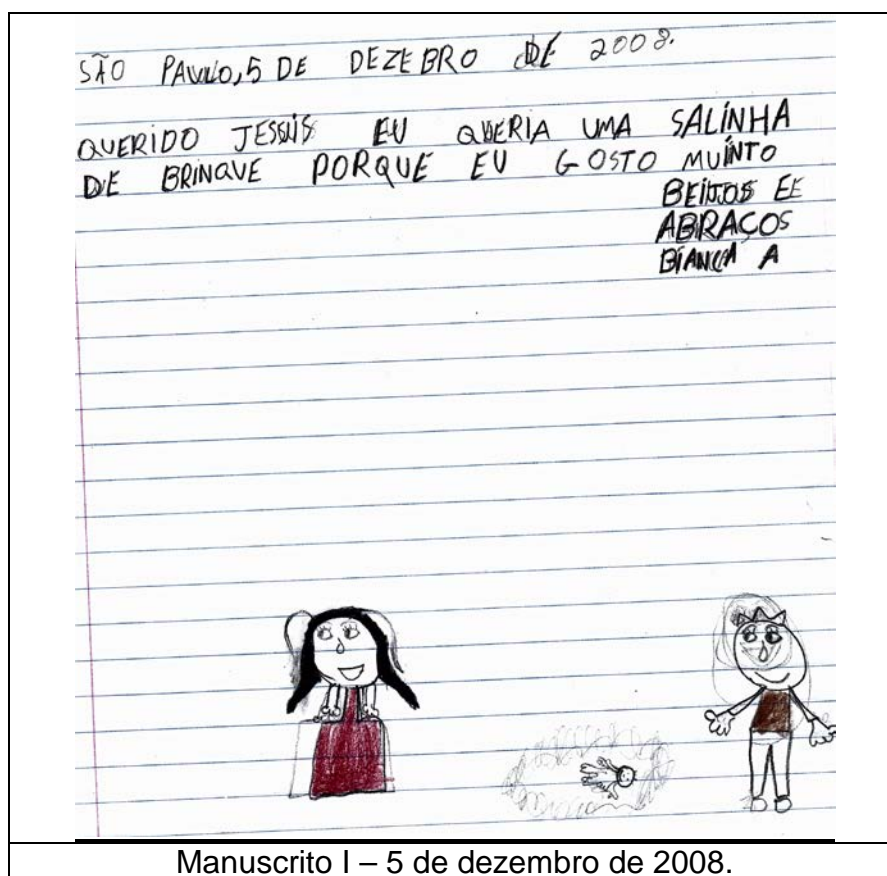 SÃO PAULO,5 DE DEZEBRO DE 2008.
QUERIDO JESSUS EU QUERIA UMA SALINHA
DE BRINQUE PORQUE EU GOSTO MUINTO
BEIJOS EE
ABRAÇOS
BIANCA A
Manuscrito I – 5 de dezembro de 2008.